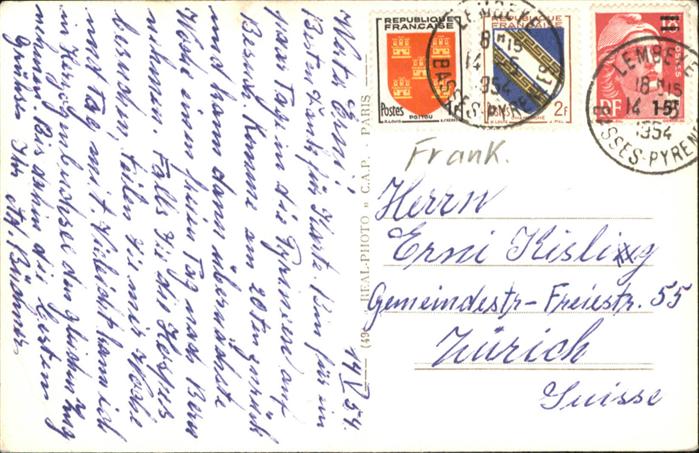 14 V 54.
Wert. Erni
Besten Dank für Karte Bin für ein
paar Tage in die Pyrenäen auf
Besuch, komme am 20ten zurück
und kann dann übernächste
Woche einen freien Tag nach Bern
nehmen. Falls Sie die Hospes
besuchen, teilen Sie mir Woche
und Tag mit. Vielleicht kann ich
in Herzogenbuchsee den gleichen Zug
nehmen. Bis dahin die besten
Grüsse Ihr
REPUBLIQUE
FRANCAISE
Postes
POITOU
REPUBLIQUE
FRANÇAISE
2f
RF
15F
LEMBEYE
18 H 15
14 - 5
1954
BASSES-PYRENEES
LEMBEYE
18 H 15
14 - 5
1954
BASSES-PYRENEES
"REAL-PHOTO" C.A.P. - PARIS
Frank.
Herrn
Erni Kisling
Gemeindestr-Freiestr. 55
Zürich
Suisse